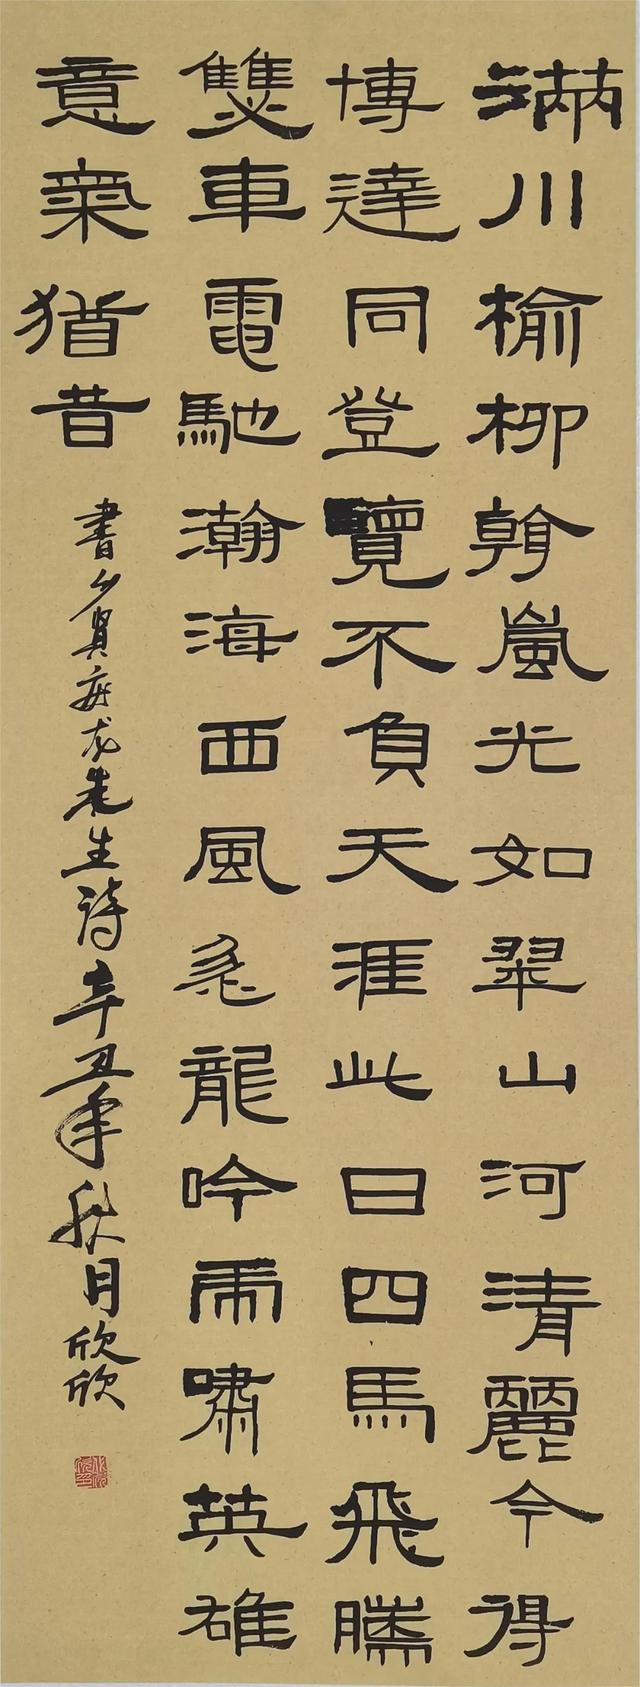 滿川榆柳翰嵐光如翠山河清麗今得
博達同登覽不負天涯此日四馬飛騰
雙車電馳瀚海西風急龍吟雨嘯英雄
意氣猶昔
書乡賢 先生詩辛丑年秋月欣欣